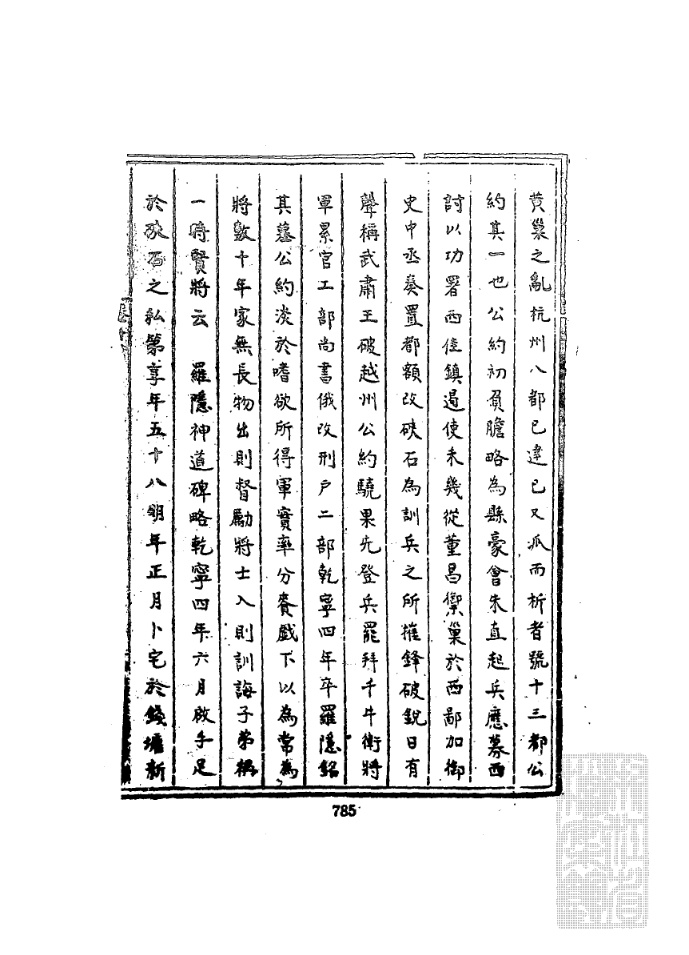 黄巢之亂杭州八都已違已又派而析者號十三都公
約其一也公約初負膽略為縣豪會朱直起兵應募西
討以功署西佳鎮遏使未幾從董昌禦巢於西鄙加御
史中丞奏置都額改硤石為訓兵之所摧鋒破銳日有
聲稱武肅王破越州公約驍果先登兵罷拜千牛衛將
軍累官工部尚書俄改刑戶二部乾寧四年卒羅隱銘
其墓公約淡於嗜欲所得軍實率分賚戲下以為常為
將數十年家無長物出則督勵將士入則訓誨子弟稱
一時賢將云 羅隱神道碑略乾寧四年六月啟手足
於硤石之私第享年五十八明年正月卜宅於錢塘新
785